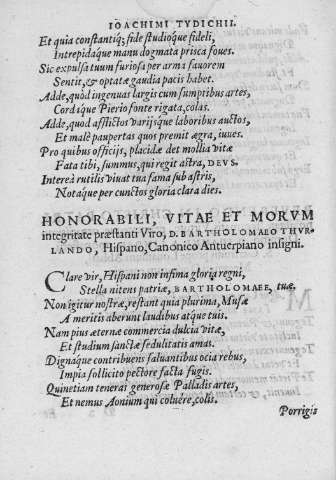 IOACHIMI TYDICHII.
Et quia constantiq; fide studioque fideli,
Intrepidaque manu dogmata prisca foues.
Sic expulsa tuum furiosa per arma fauorem
Sentit, & optatæ gaudia pacis habet.
Adde, quod ingenuas largis cum sumptibus artes,
Cordique Pierio fonte rigata, colas.
Adde, quod afflictos varijsque laboribus auctos,
Et malè paupertas quos premit ægra, iuues.
Pro quibus officijs, placidæ det mollia vitæ
Fata tibi, summus, qui regit astra, DEVS.
Intereà rutilis viuat tua fama sub astris,
Notaque per cunctos gloria clara dies.
HONORABILI, VITAE ET MORVM
integritate præstanti Viro, D. BARTHOLOMAEO THVR-
LANDO, Hispano, Canonico Antuerpiano insigni.
Clare vir, Hispani non infima gloria regni,
Stella nitens patriæ, BARTHOLOMAEE, tuæ.
Non igitur nostræ, restant quia plurima, Musæ
A meritis aberunt laudibus atque tuis.
Nam pius æternæ commercia dulcia vitæ,
Et studium sanctæ sedulitatis amas.
Dignaque contribuens saluantibus ocia rebus,
Impia sollicito pectore facta fugis.
Quinetiam teneras generosæ Palladis artes,
Et nemus Aonium qui coluere, colis.
Porrigis